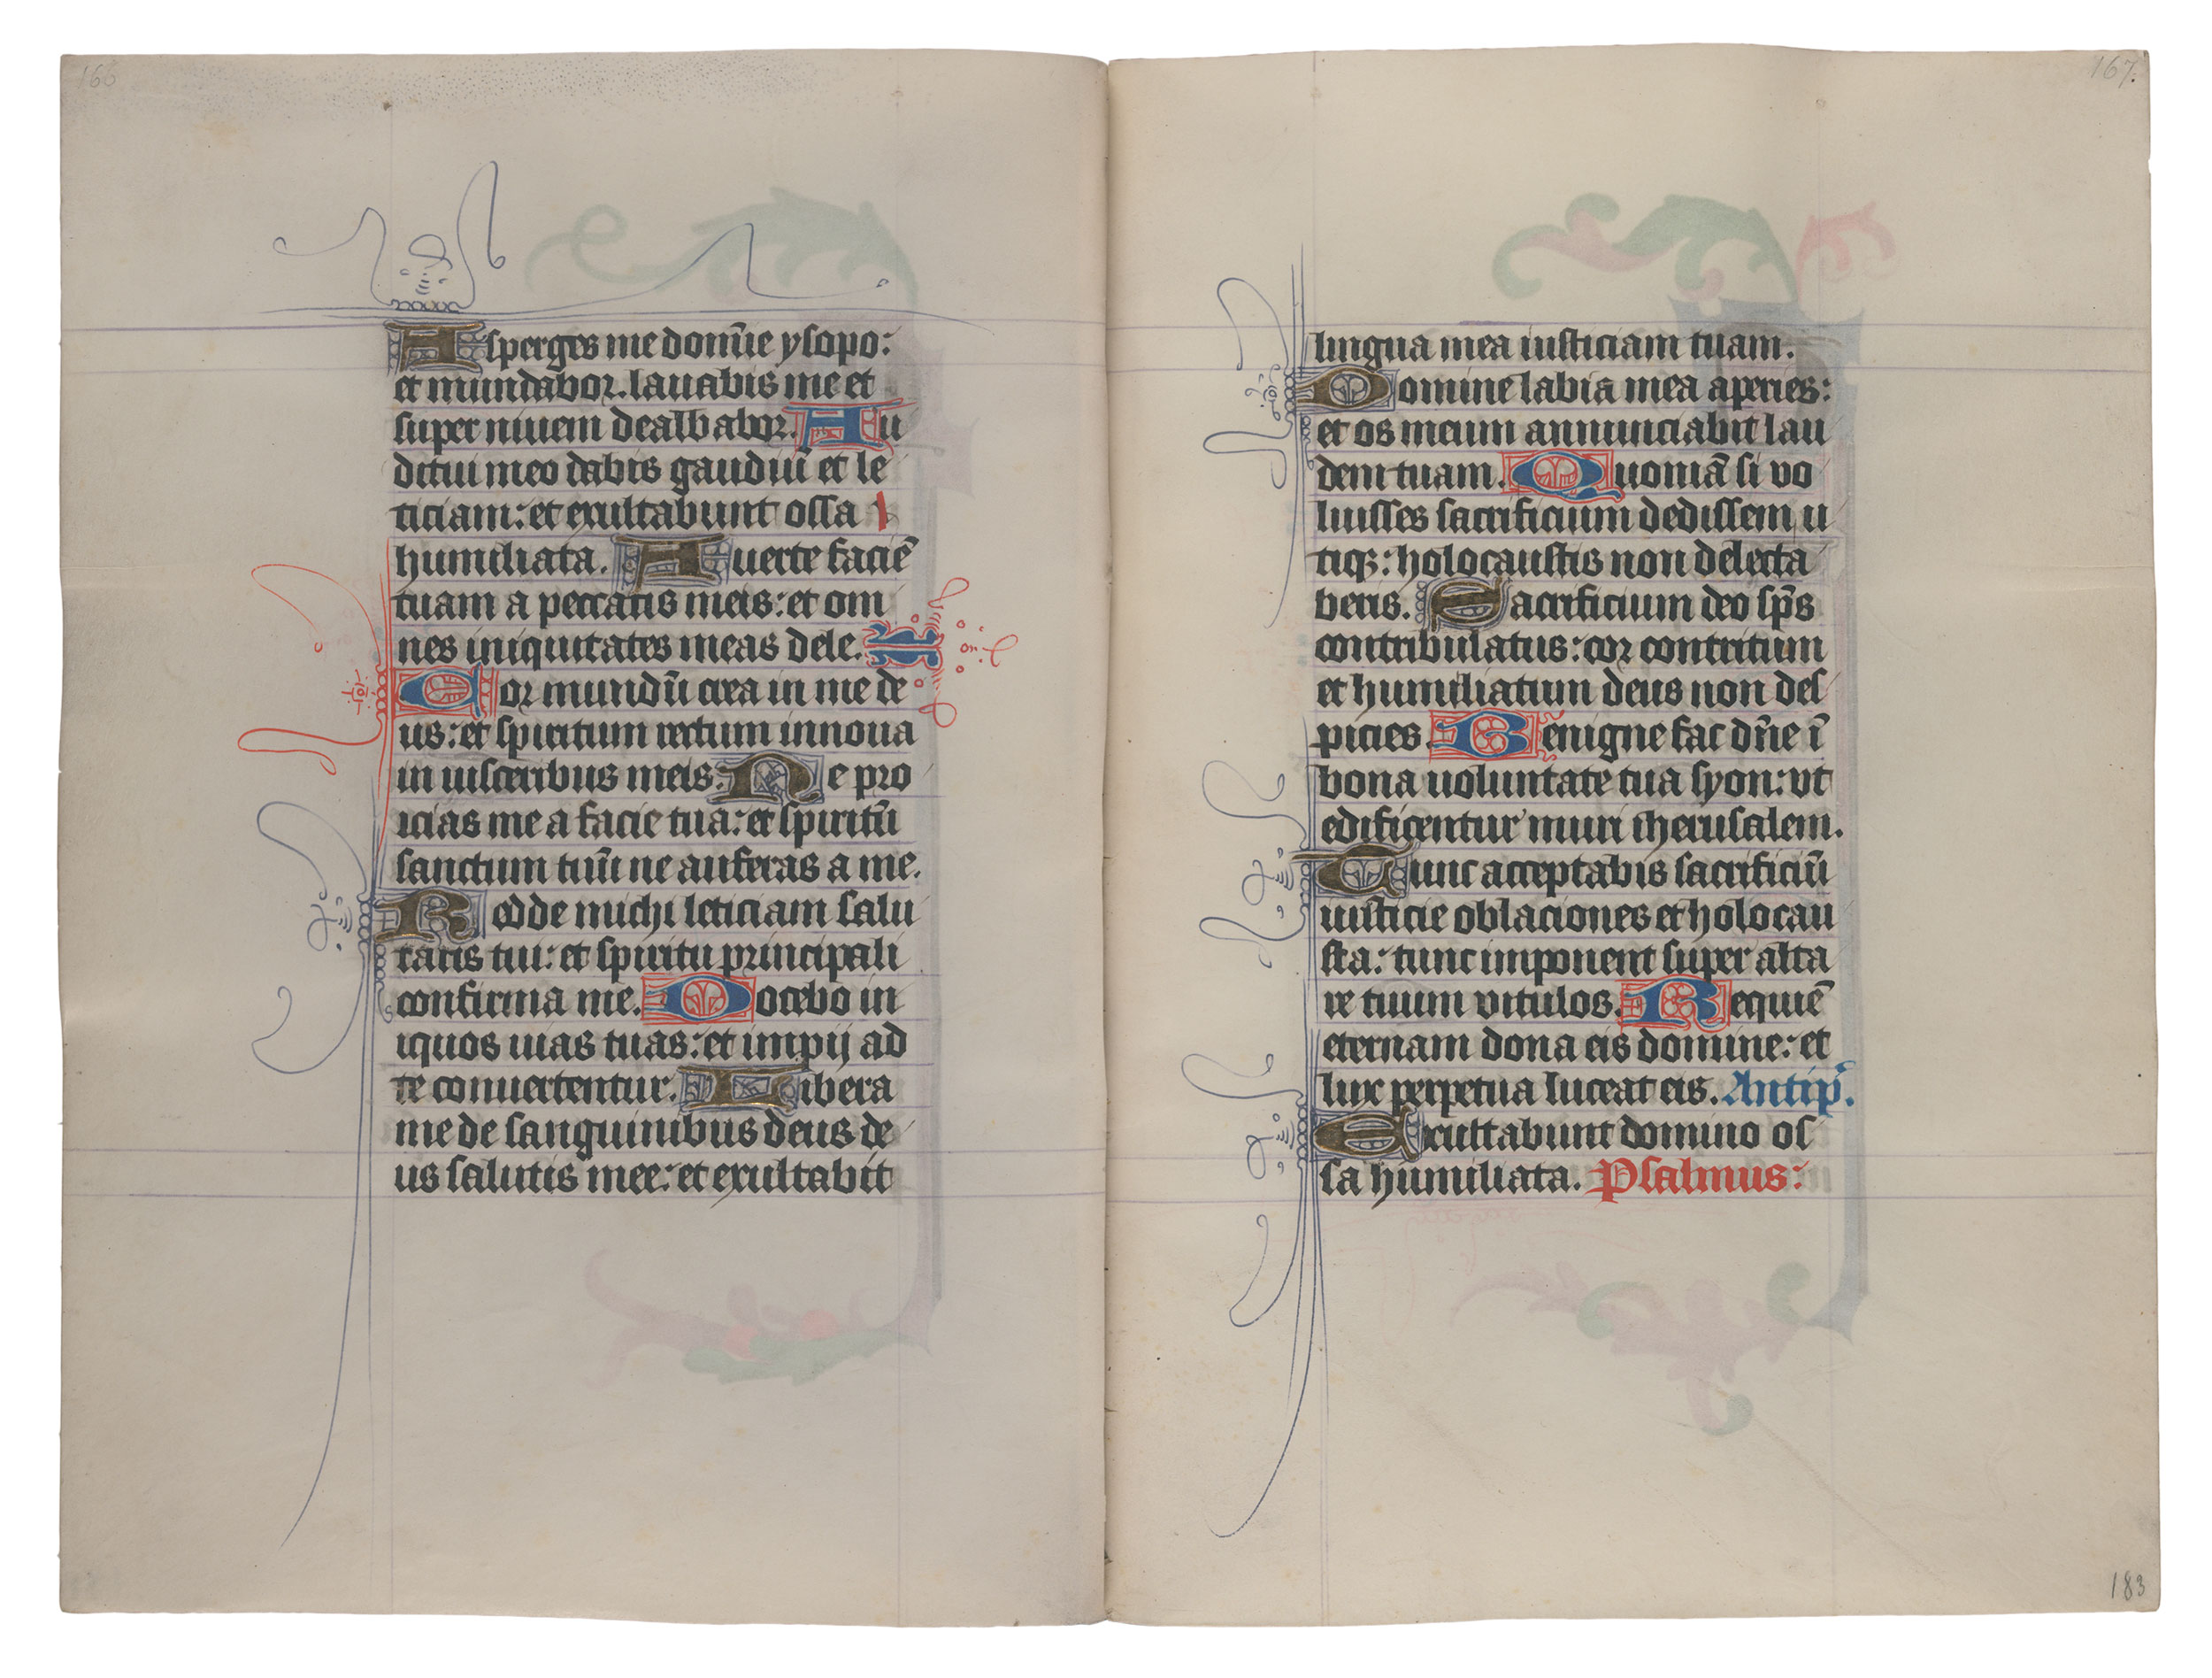 166
Asperges me dom̄ie ysopo:
et mundabor. lauabis me et
super niuem dealbabor. Au
ditui meo dabis gaudiū et le
ticiam: et exultabunt ossa
humiliata. Auerte faciē
tuam a peccatis meis: et om
nes iniquitates meas dele.
Cor mundū crea in me de
us: et spiritum rectum innoua
in uisceribus meis. Ne pro
icias me a facie tua: et spiritū
sanctum tuū ne auferas a me.
Redde michi leticiam salu
taris tui: et spiritu principali
confirma me. Docebo in
iquos uias tuas: et impij ad
te conuertentur. Libera
me de sanguinibus deus de
us salutis mee: et exultabit
167.
lingua mea iusticiam tuam.
Domine labia mea aperies:
et os meum annunciabit lau
dem tuam. Quoniā si vo
luisses sacrificium dedissem u
tiqꝫ: holocaustis non delecta
beris. Sacrificium deo sp̄s
contribulatus: cor contritum
et humiliatum deus non des
picies. Benigne fac dn̄e ī
bona uoluntate tua syon: vt
edificentur muri iherusalem.
Tunc acceptabis sacrificiū
iusticie oblaciones et holocau
sta: tunc imponent super alta
re tuum vitulos. Requiē
eternam dona eis domine: et
lux perpetua luceat eis. Antip̄.
Exultabunt domino os
sa humiliata. Psalmus:
183